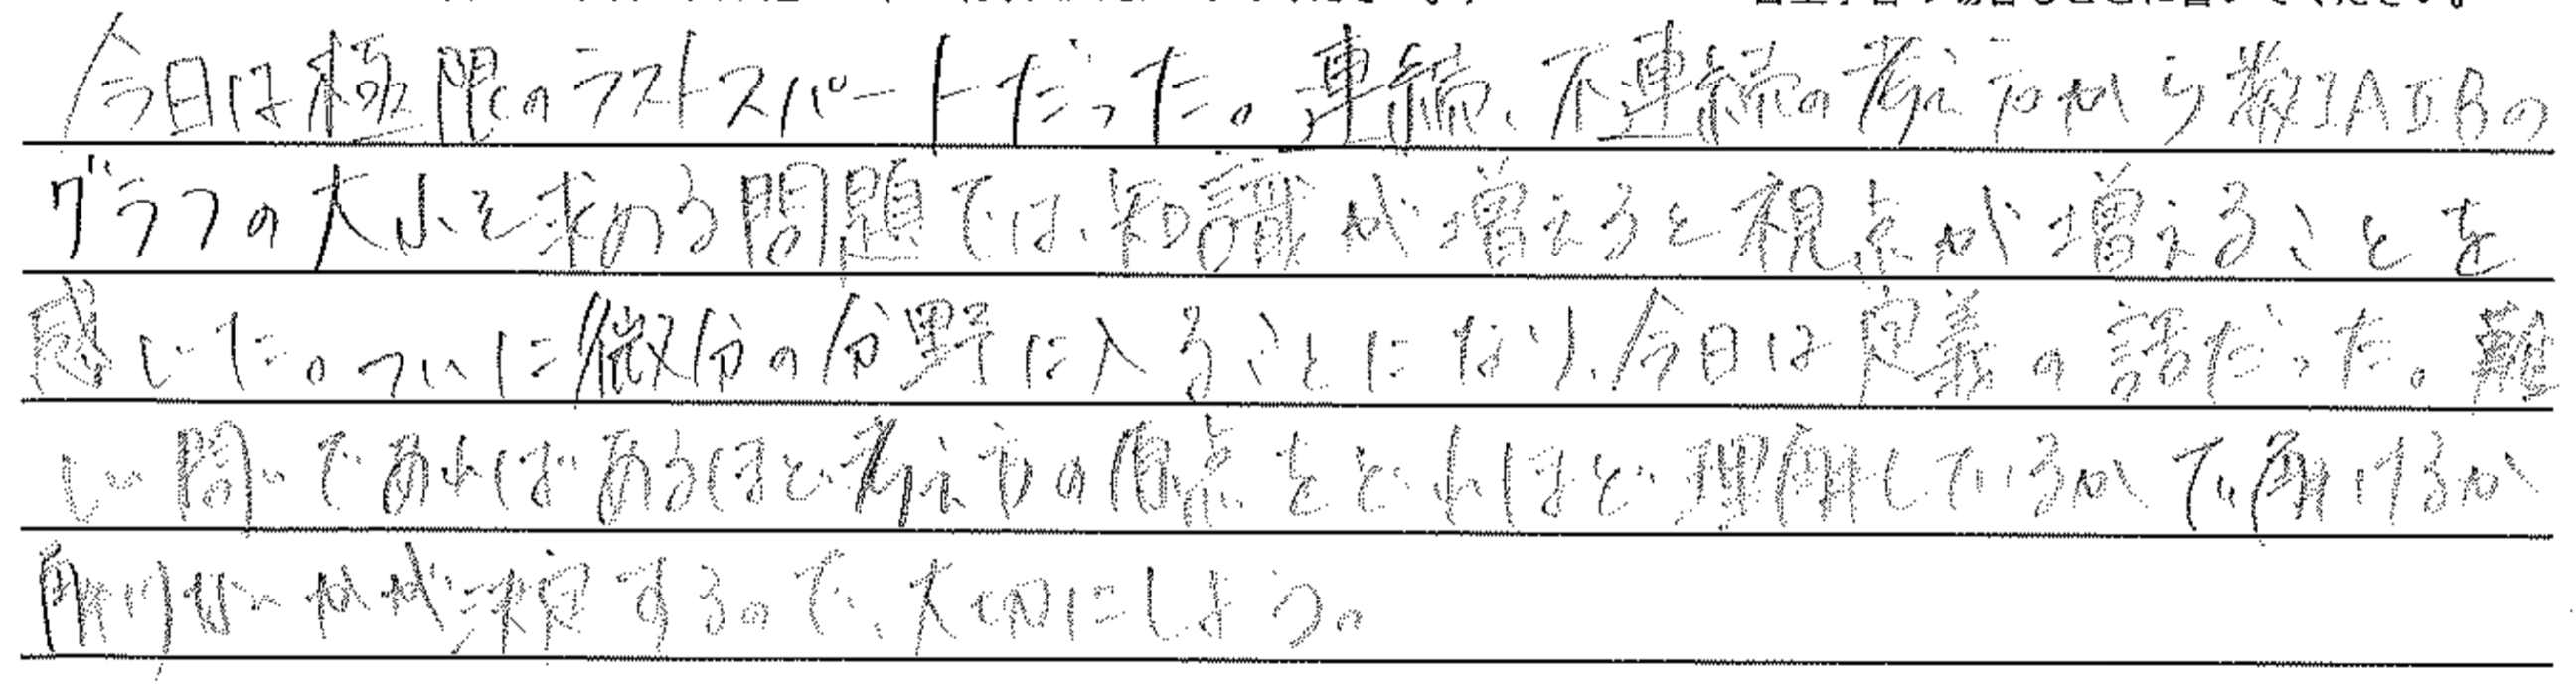 今日は極限のラストスパートだった。連続、不連続の考え方から数ⅠAⅡBの
グラフの大小を求める問題では、知識が増えると視点が増えることを
感じた。ついに微分の分野に入ることになり、今日は定義の話だった。難
しい問いであればあるほど考え方の原点をどれほど理解しているかで解けるか
解けないかが決定するので、大切にしよう。